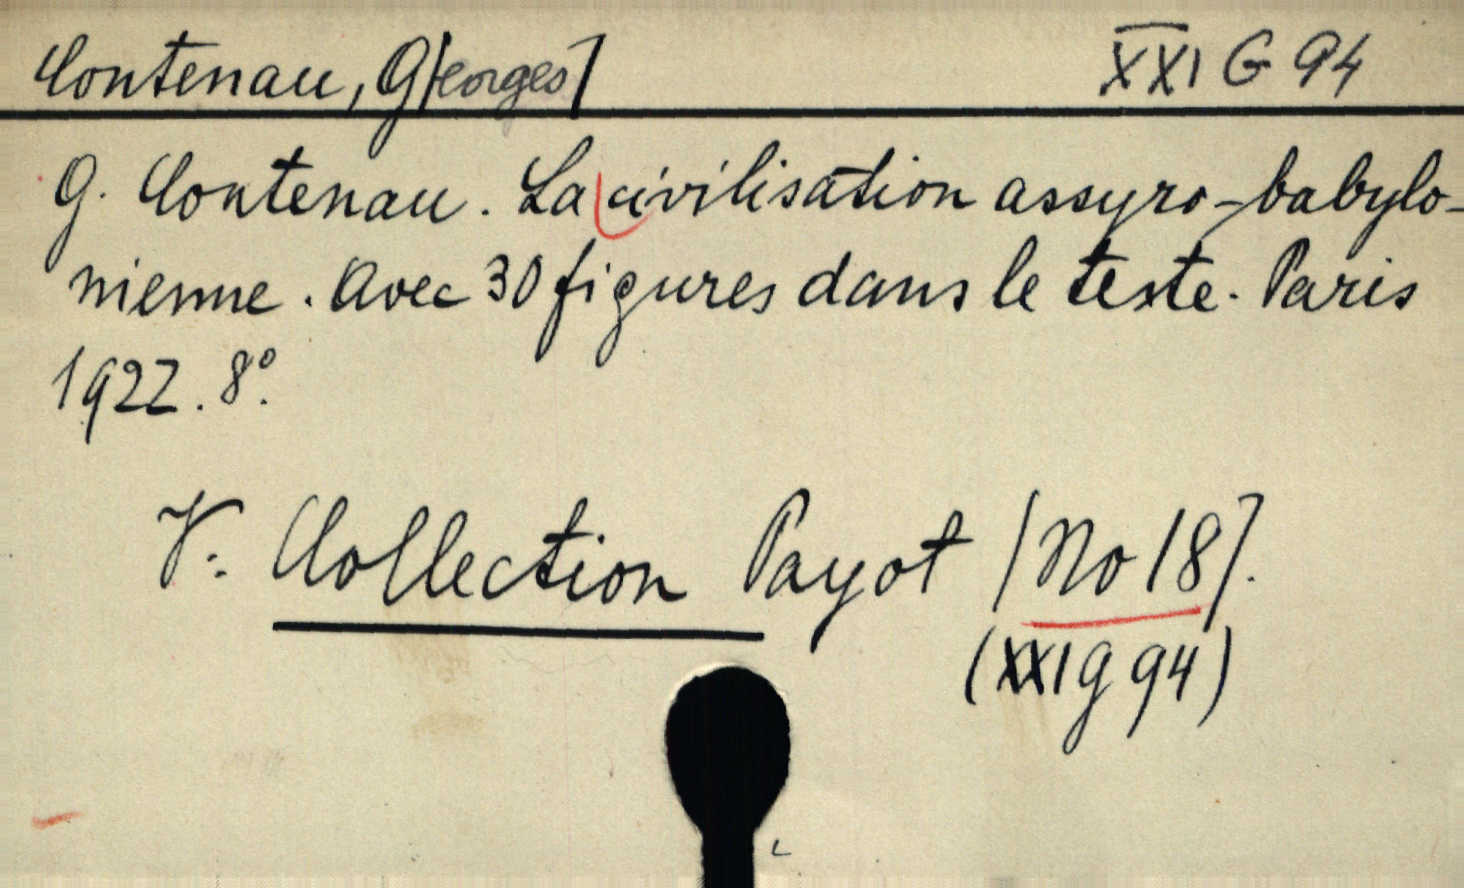 Contenau, G[eorges] XXI G 94
G. Contenau. La civilisation assyro-babylo-
nienne. Avec 30 figures dans le texte. Paris
1922. 8°.
V. Collection Payot [No 18].
(XXI G 94)